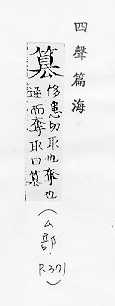 四聲篇海
篡
初患切取也奪也
逆而奪取曰篡
(ム部 P.371)